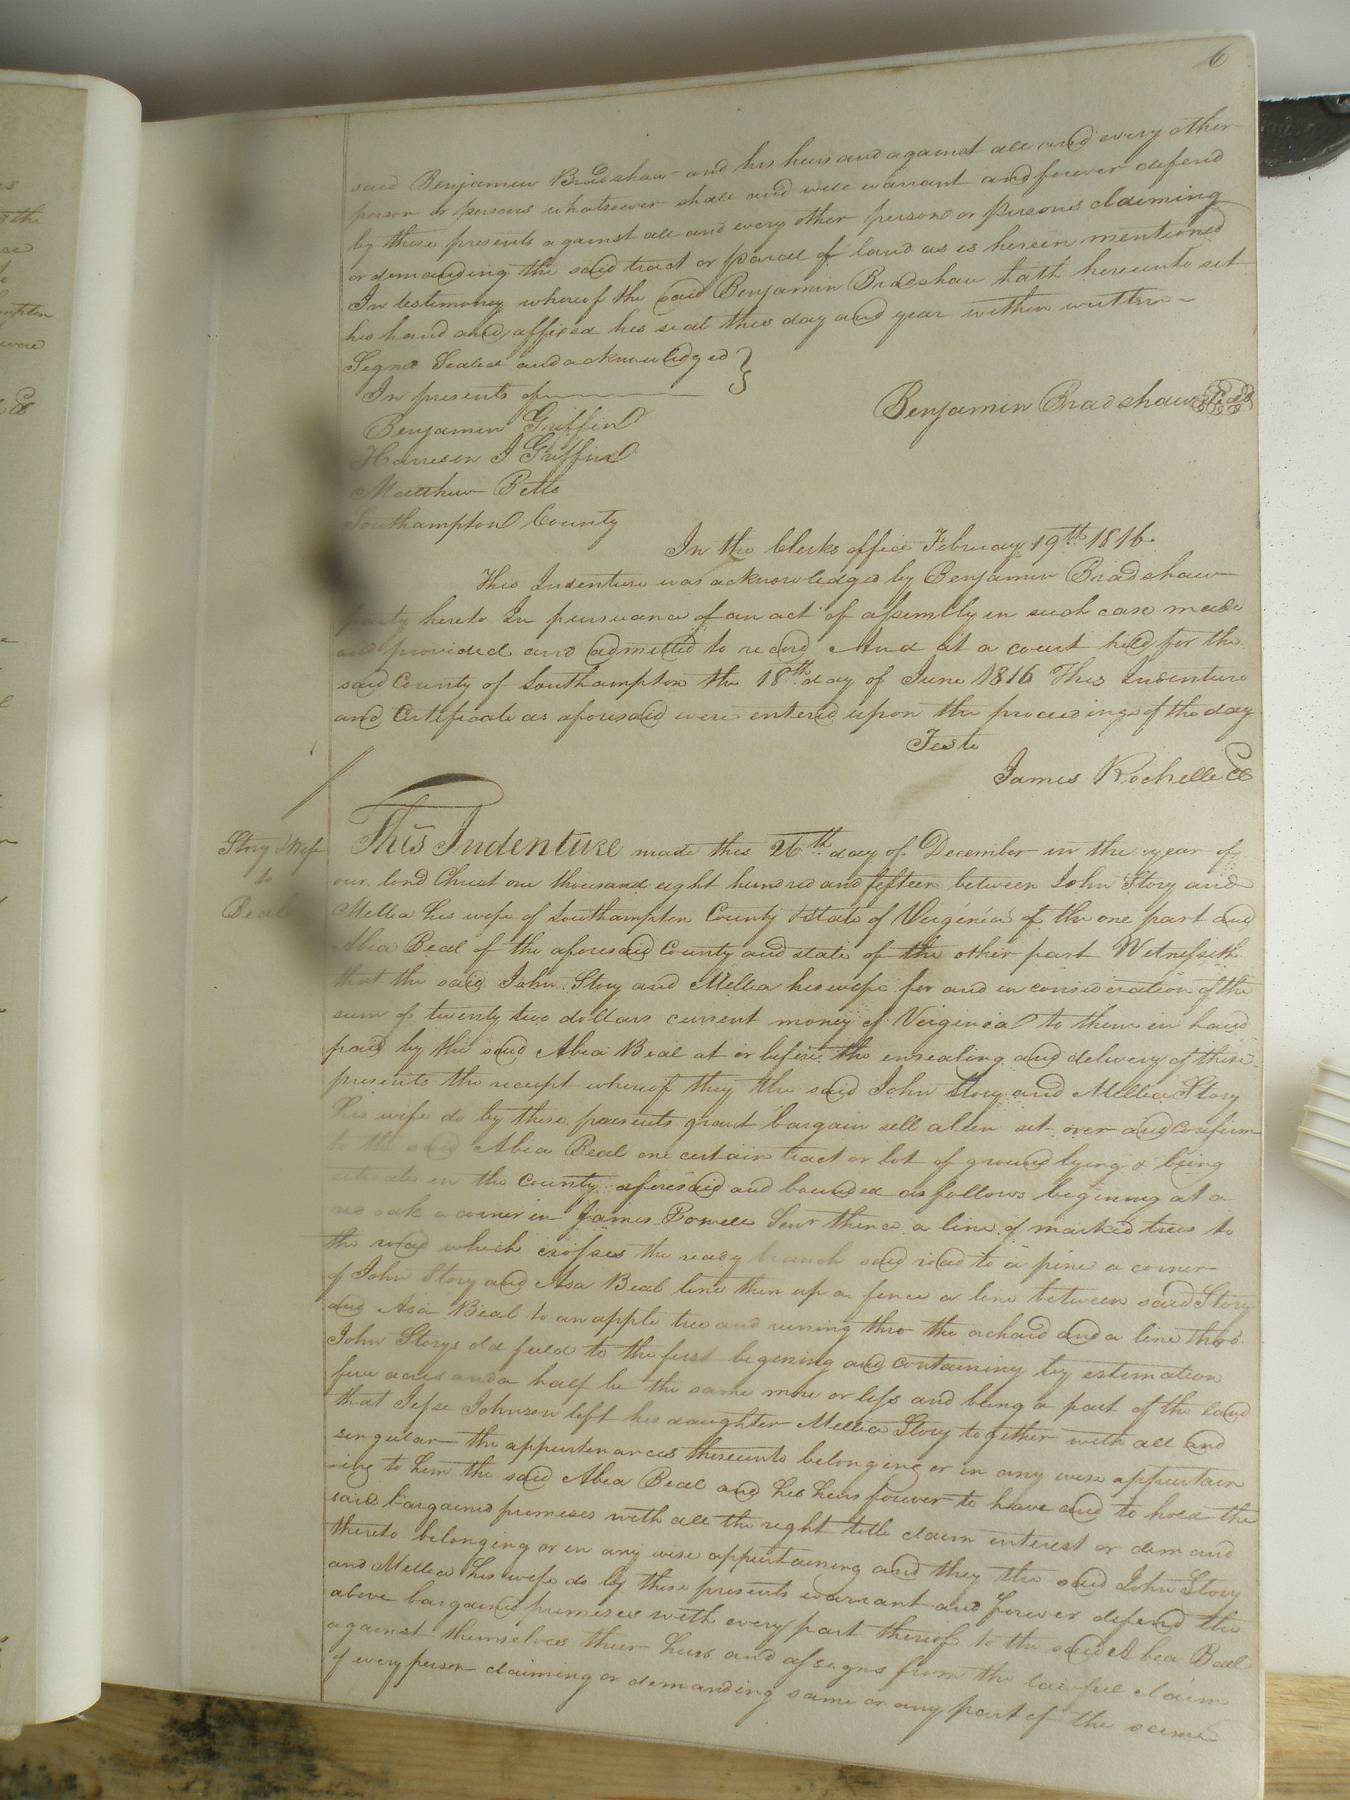 6
said Benjamin Bradshaw and his heirs and against all and every other
person or persons whatsoever shall and will warrant and forever defend
by these presents against all and every other person or persons claiming
or demanding the said tract or parcel of land as is herein mentioned
In testimony whereof the said Benjamin Bradshaw hath hereunto set
his hand and affixed his seal this day and year within written
Signed Sealed and acknowledged }
In presents of
Benjamin Bradshaw Seal
Benjamin Griffin
Harrison J Griffin
Matthew Petts
Southampton County
In the Clerks office February 19th 1816
This Indenture was acknowledged by Benjamin Bradshaw
party hereto In pursuance of an act of assembly in such case made
and provided and admitted to record And at a court held for the
said County of Southampton the 18th day of June 1816 This Indenture
and Certificate as aforesaid were entered upon the proceedings of the day
Teste
James Rochelle Cl
Story & Wife
to
Beal
This Indenture made this 26th day of December in the year of
our lord Christ one thousand eight hundred and fifteen between John Story and
Mellia his wife of Southampton County & state of Virginia of the one part and
Abia Beal of the aforesaid County and state of the other part Witnesseth
that the said John Story and Mellia his wife for and in consideration of the
sum of twenty two dollars current money of Virginia to them in hand
paid by the said Abia Beal at or before the ensealing and delivery of these
presents the receipt whereof they the said John Story and Mellia Story
his wife do by these presents grant bargain sell alien set over and confirm
to the said Abia Beal one certain tract or lot of ground lying & being
situate in the County aforesaid and bounded as follows begining at a
red oak a corner in James Powell Senr thence a line of marked trees to
the road which crosses the ready branch said road to a pine a corner
of John Story and Asa Beal line then up a fence a line between said Story
and Asa Beal to an apple tree and runing thro the orchard and a line thro
John Storys old field to the first begining and containing by estimation
five acres and a half be the same more or less and being a part of the land
that Jesse Johnson left his daughter Mellia Story together with all and
singular the appurtenances thereunto belonging or in any wise appurtain
-ing to him the said Abia Beal and his heirs forever to have and to hold the
said bargained premises with all the right title claim interest or demand
thereto belonging or in any wise appurtaining and they the said John Story
and Mellia his wife do by these presents warrant and forever defend the
above bargained premises with every part thereof to the said Abia Beal
against themselves their heirs and assigns from the lawful claim
of every person claiming or demanding same or any part of the same